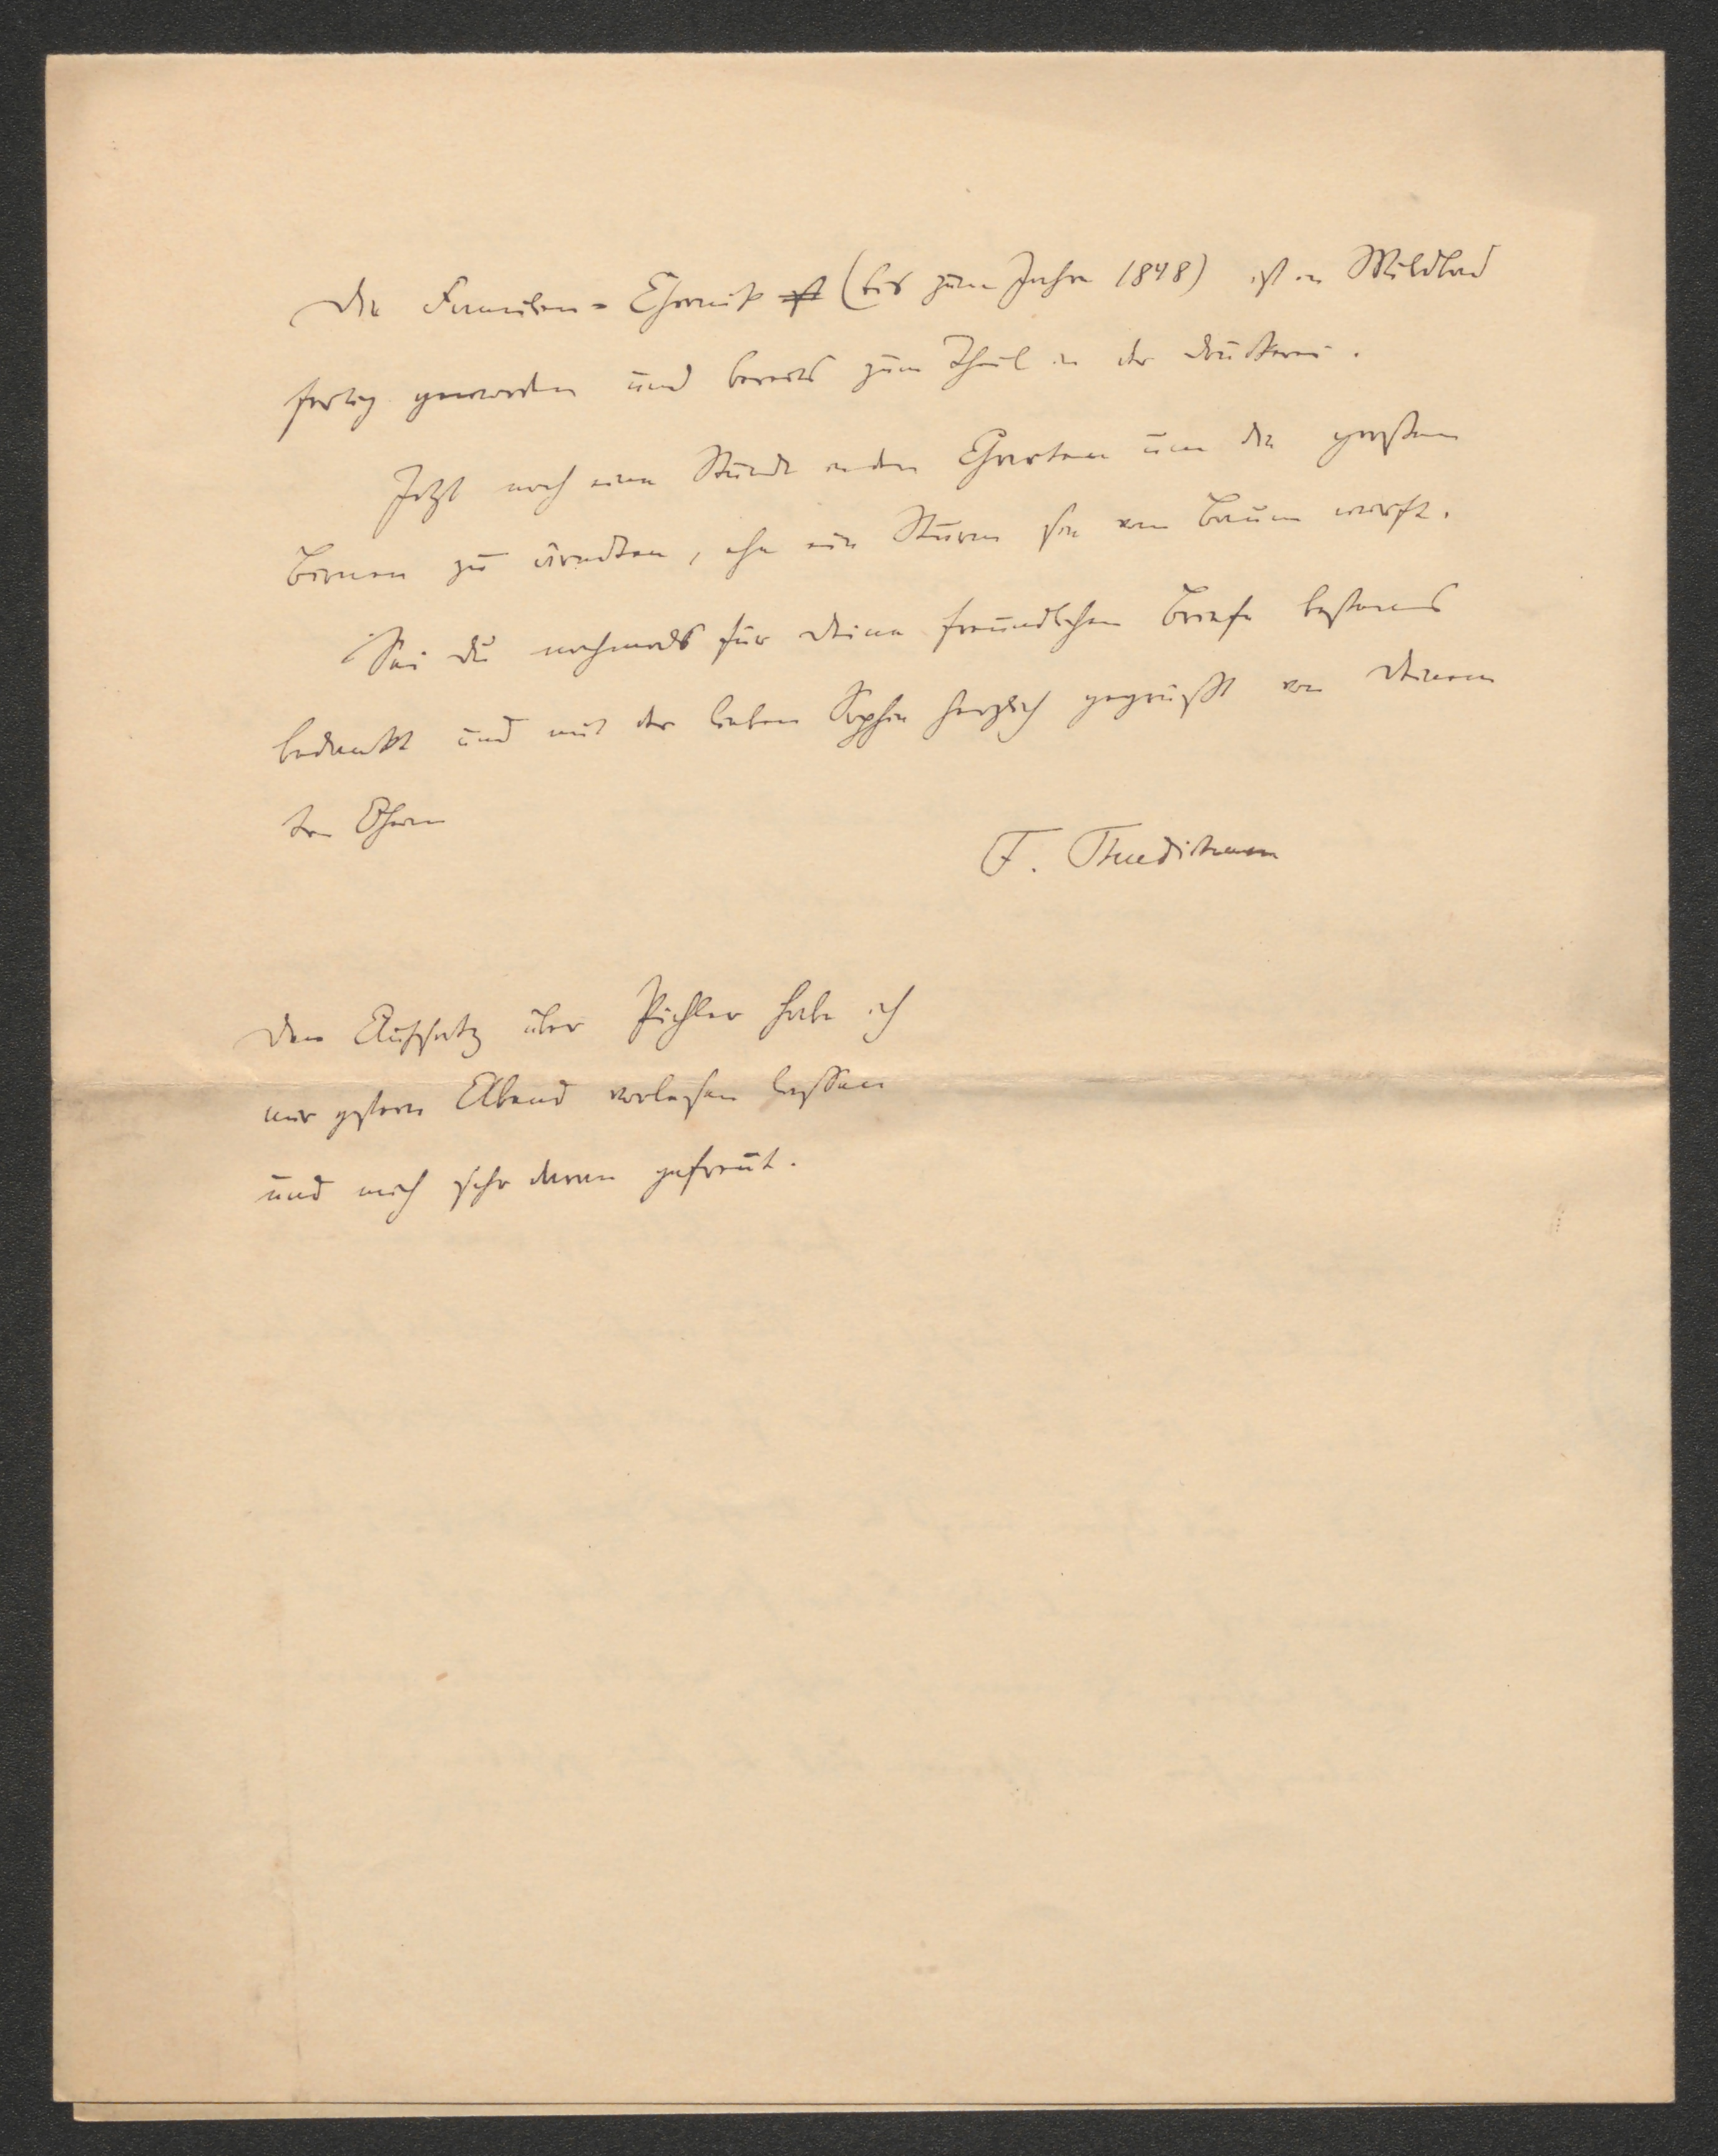 Die Familien-Chronik ist (bis zum Jahre 1848) ist in Wildbad
fertig geworden und bereits zum Theil in der Druckerei.
Jetzt noch eine Stunde in den Garten um die großen
Birnen zu ärndten, ehe ein Sturm sie vom Baum wirft.
Sei Du nochmals für Deine freundlichen Briefe bestens
bedankt und mit der lieben Sophie herzlich gegrüßt von Deinem
tr. Ohm
F. Thudichum
Den Aufsatz über Pichler habe ich
mir gestern Abend vorlesen lassen
und mich sehr daran gefreut.